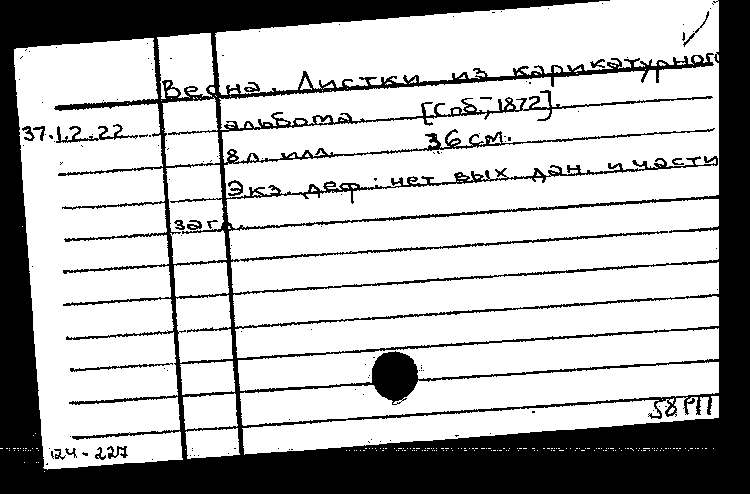 Весна. Листки из карикатурного
альбома. [Спб., 1872].
37.1.2.22
8 л. илл. 36 см.
Экз. деф: нет вых. дан. и части
загл.
124-227